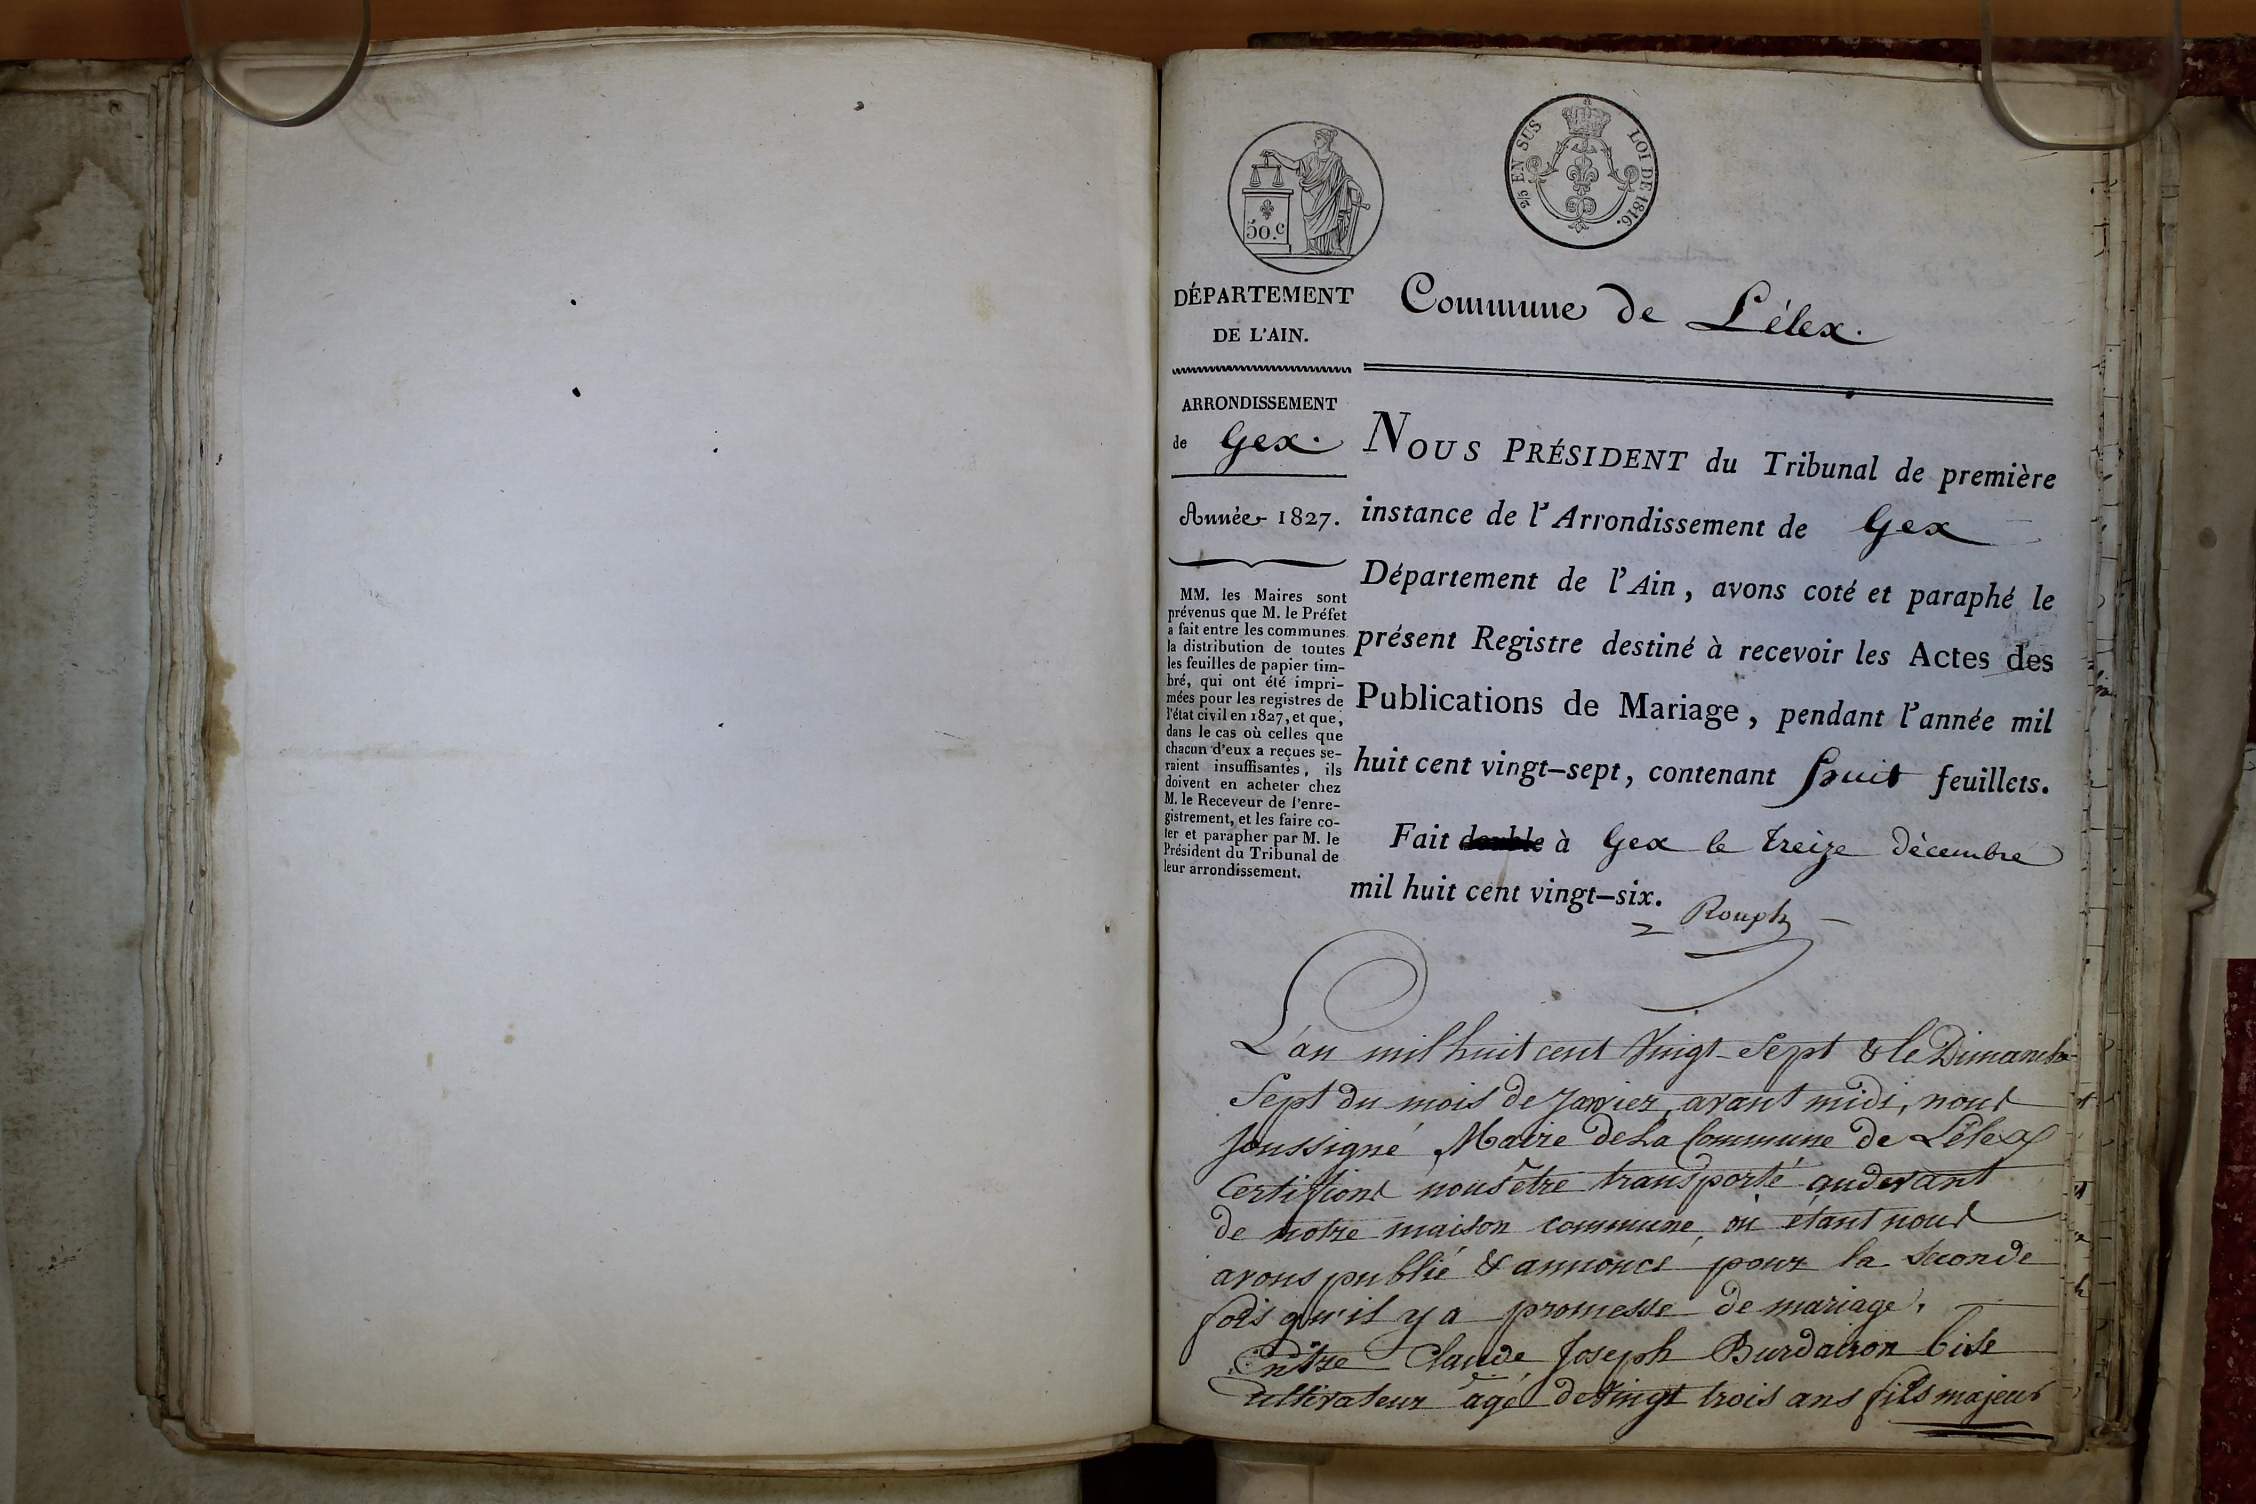 50.c
2/5 EN SUS LOI DE 1816.
DÉPARTEMENT
DE L'AIN.
Commune de Lélex.
ARRONDISSEMENT
de Gex.
Année 1827.
MM. les Maires sont
prévenus que M. le Préfet
a fait entre les communes
la distribution de toutes
les feuilles de papier tim-
bré, qui ont été impri-
mées pour les registres de
l'état civil en 1827, et que,
dans le cas où celles que
chacun d'eux a reçues se-
raient insuffisantes, ils
doivent en acheter chez
M. le Receveur de l'enre-
gistrement, et les faire co-
ter et parapher par M. le
Président du Tribunal de
leur arrondissement.
NOUS PRÉSIDENT du Tribunal de première
instance de l'Arrondissement de Gex
Département de l'Ain, avons coté et paraphé le
présent Registre destiné à recevoir les Actes des
Publications de Mariage, pendant l'année mil
huit cent vingt-sept, contenant huit feuillets.
Fait double à Gex le treize décembre
mil huit cent vingt-six.
Rouph
L'an mil huit cent Vingt-Sept & le Dimanche
Sept du mois de Janvier, avant midi, nous
soussigné Maire de la Commune de Lélex
Certifions nous être transporté audevant
de notre maison commune, où étant nous
avons publié & annoncé pour la seconde
fois qu'il y a promesse de mariage,
Entre Claude Joseph Burdairon bise
cultivateur âgé de Vingt trois ans fils majeur